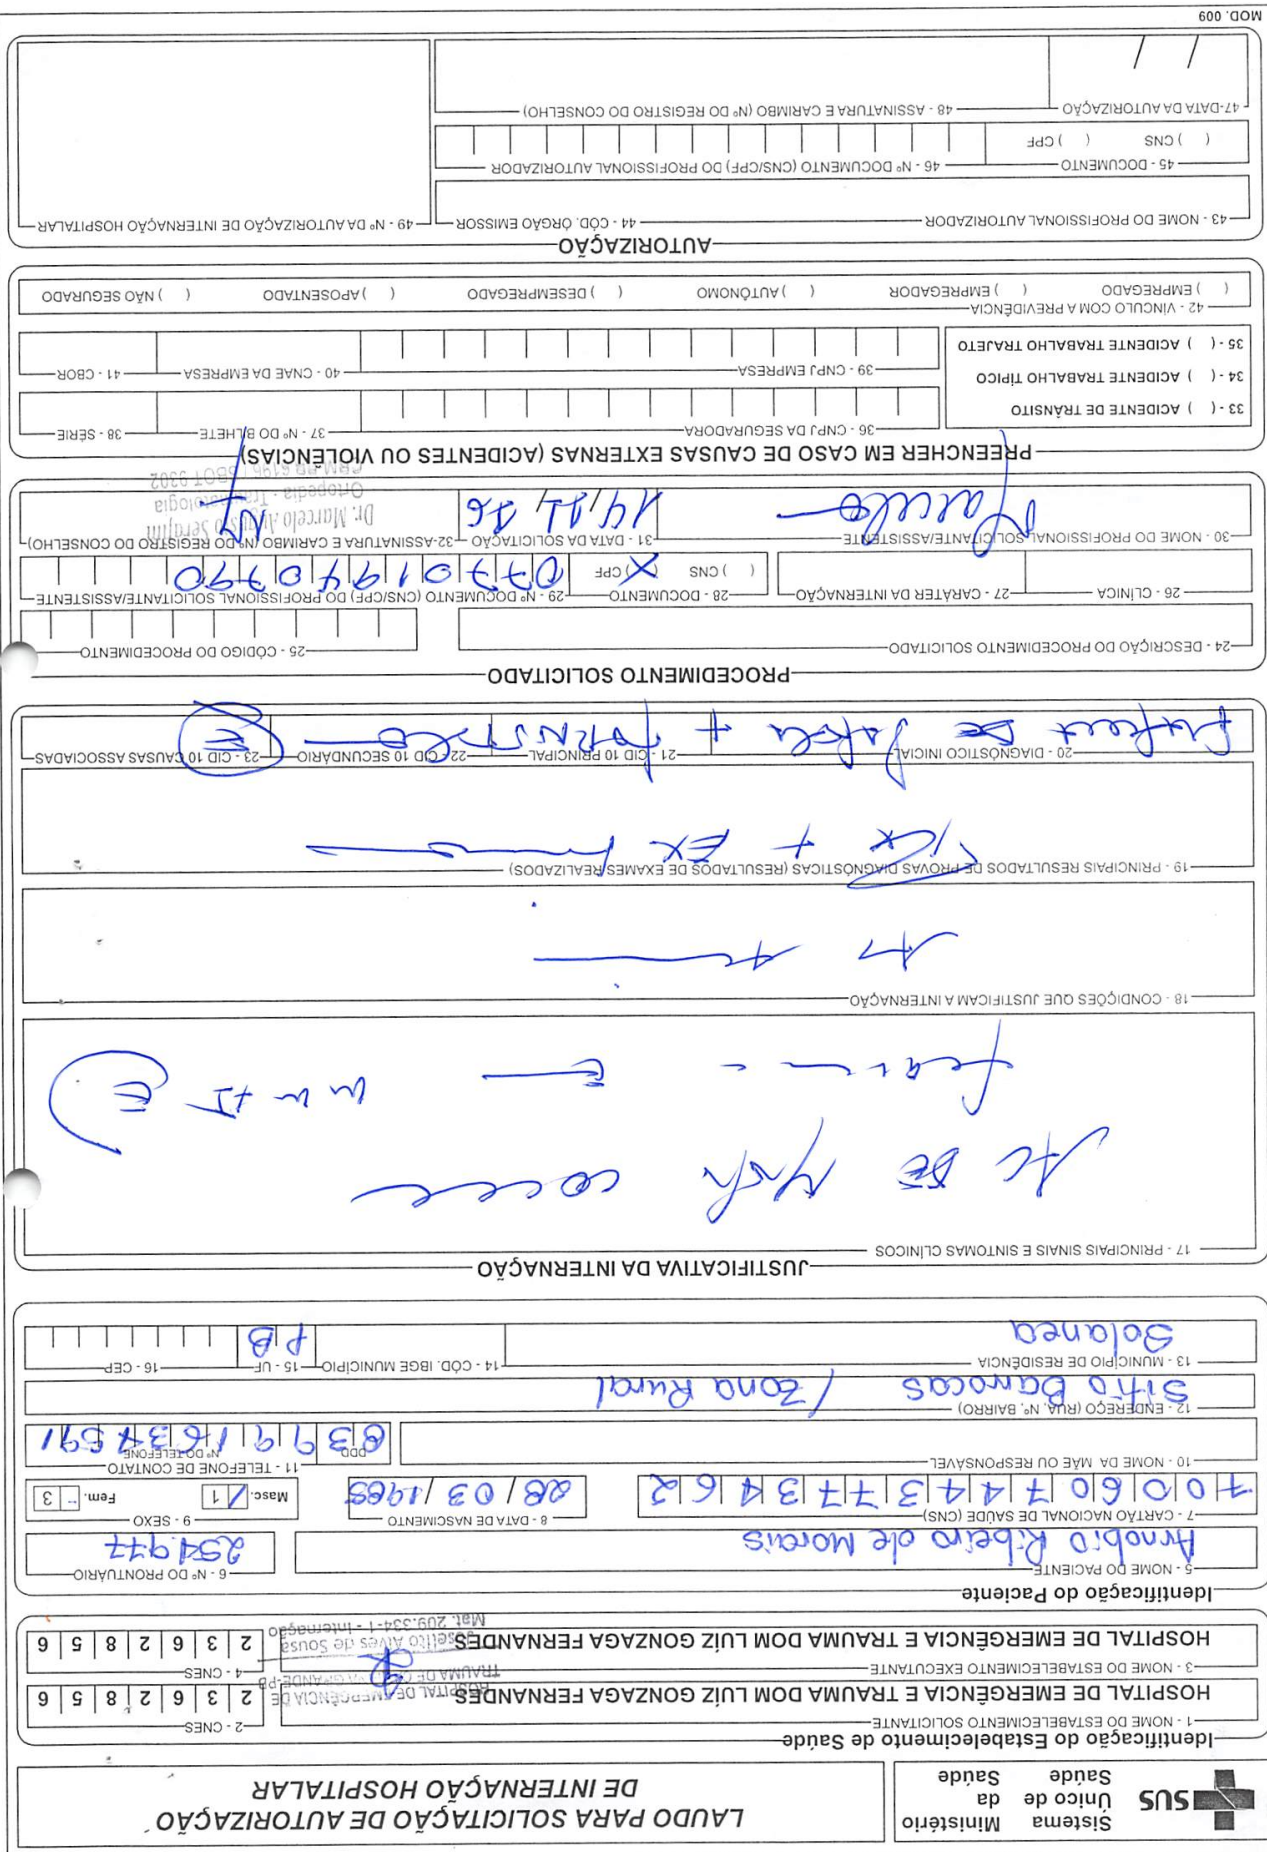 SUS
Sistema Único de Saúde
Ministério da Saúde
LAUDO PARA SOLICITAÇÃO DE AUTORIZAÇÃO
DE INTERNAÇÃO HOSPITALAR
Identificação do Estabelecimento de Saúde
1 - NOME DO ESTABELECIMENTO SOLICITANTE
2 - CNES
HOSPITAL DE EMERGÊNCIA E TRAUMA DOM LUÍZ GONZAGA FERNANDES
2 3 6 2 8 5 6
HOSPITAL DE EMERGÊNCIA DE
TRAUMA DE CAMPINA GRANDE-PB
3 - NOME DO ESTABELECIMENTO EXECUTANTE
4 - CNES
HOSPITAL DE EMERGÊNCIA E TRAUMA DOM LUÍZ GONZAGA FERNANDES
2 3 6 2 8 5 6
Joselito Alves de Sousa
Mat. 209.334-1 - Internação
Identificação do Paciente
5 - NOME DO PACIENTE
6 - Nº DO PRONTUÁRIO
Arnobio Ribeiro de Morais
254.977
7 - CARTÃO NACIONAL DE SAÚDE (CNS)
8 - DATA DE NASCIMENTO
9 - SEXO
700607443773462
28/03/1985
Masc. 1 Fem. 3
10 - NOME DA MÃE OU RESPONSÁVEL
11 - TELEFONE DE CONTATO
DDD Nº DO TELEFONE
83991637591
12 - ENDEREÇO (RUA, Nº, BAIRRO)
Sitio Barrocas / Zona Rural
13 - MUNICÍPIO DE RESIDÊNCIA
14 - CÓD. IBGE MUNICÍPIO
15 - UF
16 - CEP
Solanea
PB
JUSTIFICATIVA DA INTERNAÇÃO
17 - PRINCIPAIS SINAIS E SINTOMAS CLÍNICOS
AC DE
E
18 - CONDIÇÕES QUE JUSTIFICAM A INTERNAÇÃO
19 - PRINCIPAIS RESULTADOS DE PROVAS DIAGNÓSTICAS (RESULTADOS DE EXAMES REALIZADOS)
+ EX
20 - DIAGNÓSTICO INICIAL
21 - CID 10 PRINCIPAL
22 - CID 10 SECUNDÁRIO
23 - CID 10 CAUSAS ASSOCIADAS
DE + E
PROCEDIMENTO SOLICITADO
24 - DESCRIÇÃO DO PROCEDIMENTO SOLICITADO
25 - CÓDIGO DO PROCEDIMENTO
26 - CLÍNICA
27 - CARÁTER DA INTERNAÇÃO
28 - DOCUMENTO
29 - Nº DOCUMENTO (CNS/CPF) DO PROFISSIONAL SOLICITANTE/ASSISTENTE
( ) CNS (X) CPF
07701940790
30 - NOME DO PROFISSIONAL SOLICITANTE/ASSISTENTE
31 - DATA DA SOLICITAÇÃO
32-ASSINATURA E CARIMBO (Nº DO REGISTRO DO CONSELHO)
Marcelo
14/11/16
Dr. Marcelo Augusto Serafim
Ortopedia - Traumatologia
CRM-PB 6196 SBOT 9302
PREENCHER EM CASO DE CAUSAS EXTERNAS (ACIDENTES OU VIOLÊNCIAS)
33 - ( ) ACIDENTE DE TRÂNSITO
34 - ( ) ACIDENTE TRABALHO TÍPICO
35 - ( ) ACIDENTE TRABALHO TRAJETO
36 - CNPJ DA SEGURADORA
37 - Nº DO BILHETE
38 - SÉRIE
39 - CNPJ EMPRESA
40 - CNAE DA EMPRESA
41 - CBOR
42 - VÍNCULO COM A PREVIDÊNCIA
( ) EMPREGADO ( ) EMPREGADOR ( ) AUTÔNOMO ( ) DESEMPREGADO ( ) APOSENTADO ( ) NÃO SEGURADO
AUTORIZAÇÃO
43 - NOME DO PROFISSIONAL AUTORIZADOR
44 - CÓD. ÓRGÃO EMISSOR
49 - Nº DA AUTORIZAÇÃO DE INTERNAÇÃO HOSPITALAR
45 - DOCUMENTO
46 - Nº DOCUMENTO (CNS/CPF) DO PROFISSIONAL AUTORIZADOR
( ) CNS ( ) CPF
47-DATA DA AUTORIZAÇÃO
48 - ASSINATURA E CARIMBO (Nº DO REGISTRO DO CONSELHO)
/ /
MOD. 009